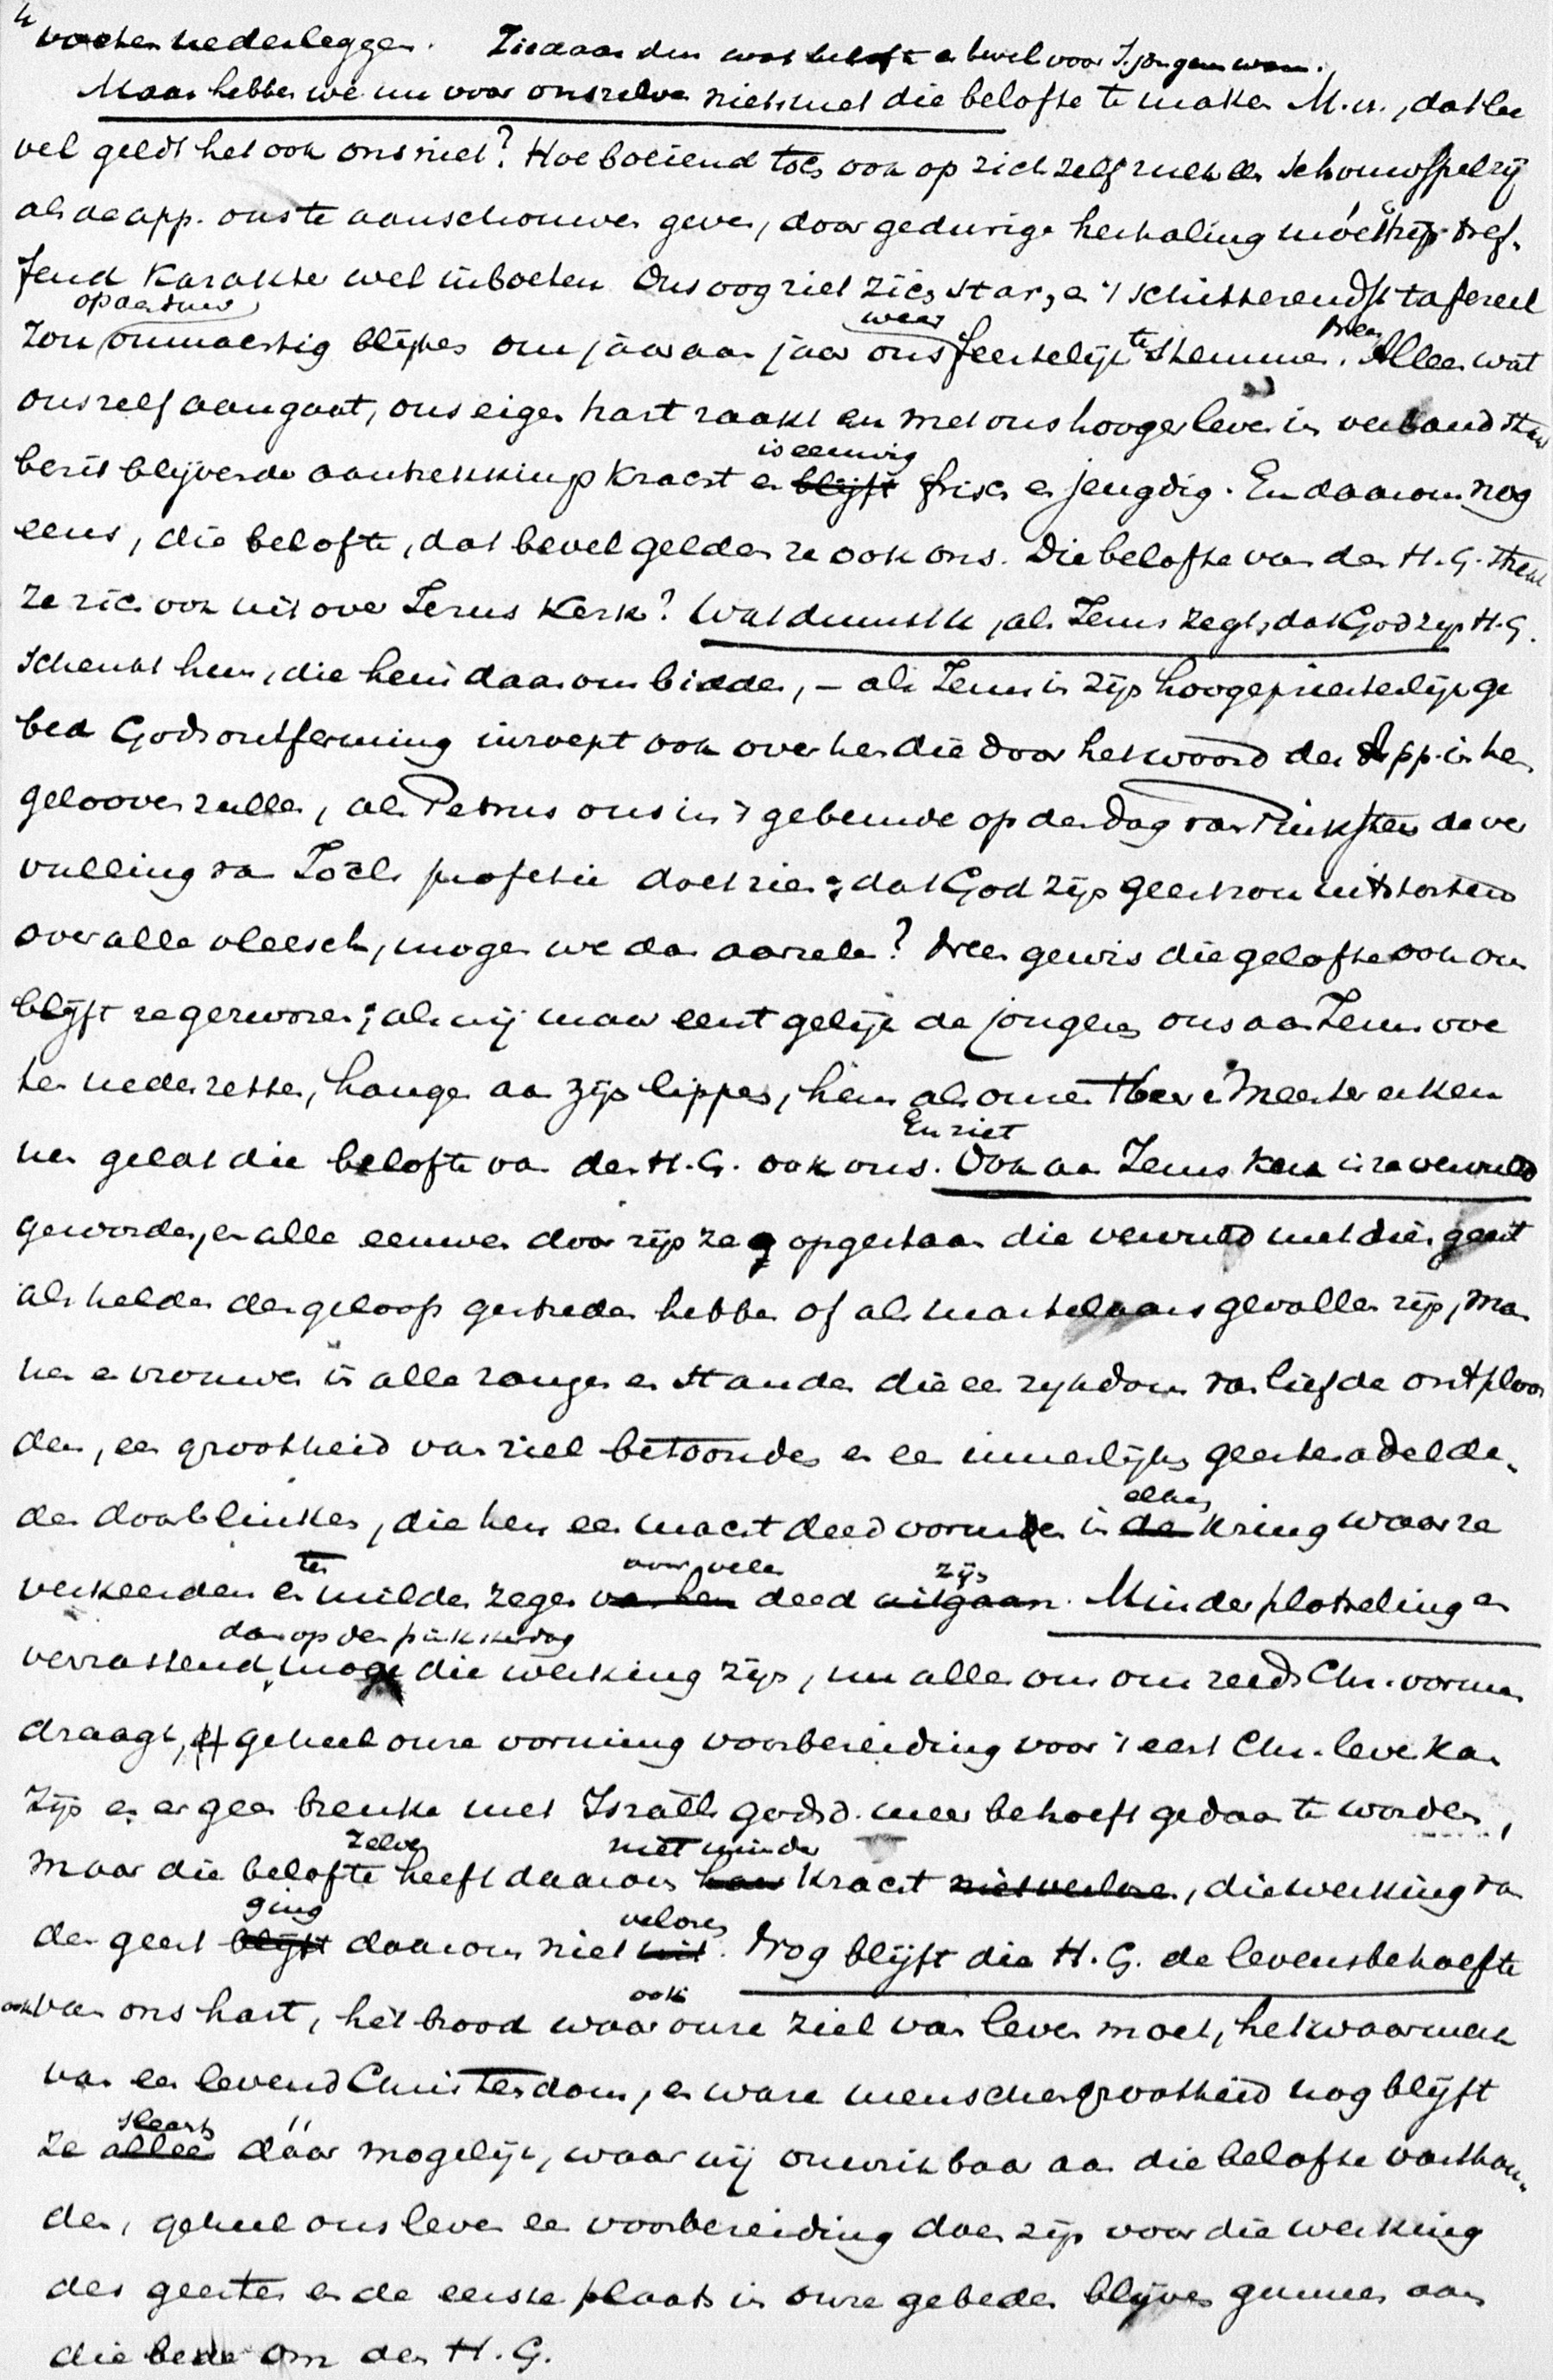 voeten nederleggen. Ziedaar den wat belofte en bevel voor J. jongeren waren.
Maar hebben we nu voor onszelve niets met die belofte te maken M. v., dat be
vel geldt het ook ons niet? Hoe boeiend toch ook op zich zelf zulk een schouwspel zij
als de app. ons te aanschouwen geven, door gedurige herhaling moet zijn tref-
fend karakter wel inboeten. Ons oog ziet zich star, en 't schitterendst tafereel
op den duur
zou onmachtig blijken om jaar aan jaar ons weer feestelijk te stemmen. Neen Alleen wat
onszelf aangaat, ons eigen hart raakt en met ons hooger leven in verband staat
bezit blijvende aantrekkingskracht en blijft is eeuwig frisch en jeugdig. En daarom nog
eens, die belofte, dat bevel gelden ze ook ons. Die belofte van den H. G. strekt
ze zich ook uit over Jezus Kerk? Wat dunkt u, als Jezus zegt, dat God zijn H. G.
schenkt hun, die hem daarom bidden, – als Jezus in zijn hoogepriesterlijk ge
bed Gods ontferming inroept ook over hen die door het woord der App. in hem
gelooven zullen, als Petrus ons in 't gebeurde op den dag van Pinksteren de ver
vulling van Joëls profetie doet zien; dat God zijn geest zou uitstorten
over alle vleesch, mogen we dan aarzelen? Neen gewis die gelofte ook ons
blijft ze gezworen; als wij maar eerst gelijk de jongeren ons aan Jezus voe
ten nederzetten, hangen aan zijn lippen, hem als onzen Heer en Meester erken
nen geldt die belofte van den H. G. ook ons. En ziet Ook aan Jezus kerk is ze vervuld
geworden, en alle eeuwen door zijn ze opgestaan die vervuld met dien geest
als helden des geloofs gestreden hebben of als martelaars gevallen zijn, man
nen en vrouwen in alle rangen en standen die een rijkdom van liefde ontplooi
den, een grootheid van ziel betoonden en een innerlijken geestesadel de-
den doorblinken, die hen een macht deed worden in de elken kring waar ze
verkeerden en ten milden zegen van hen over velen deed uitgaan zijn. Minder plotseling en
verrassend dan op den pinksterdag moge die werking zijn, nu alles om ons reeds Chr. vormen
draagt, geheel onze vorming voorbereiding voor 't eerst Chr. leven kan
zijn en er geen breuke met Israëls godsd. meer behoeft gedaan te worden,
maar die belofte zelve heeft daarom haar niet minder kracht niet verloren, die werking van
den geest blijft ging daarom niet uit verloren. Nog blijft die H. G. de levensbehoefte
ook van ons hart, het brood waar ook onze ziel van leven moet, het waarmerk
van een levend Christendom, en ware menschengrootheid nog blijft
ze alleen slechts dáár mogelijk, waar wij onwrikbaar aan die belofte vasthou-
den, geheel ons leven een voorbereiding doen zijn voor die werking
des geestes en de eerste plaats in onze gebeden blijven gunnen aan
die bede om den H. G.